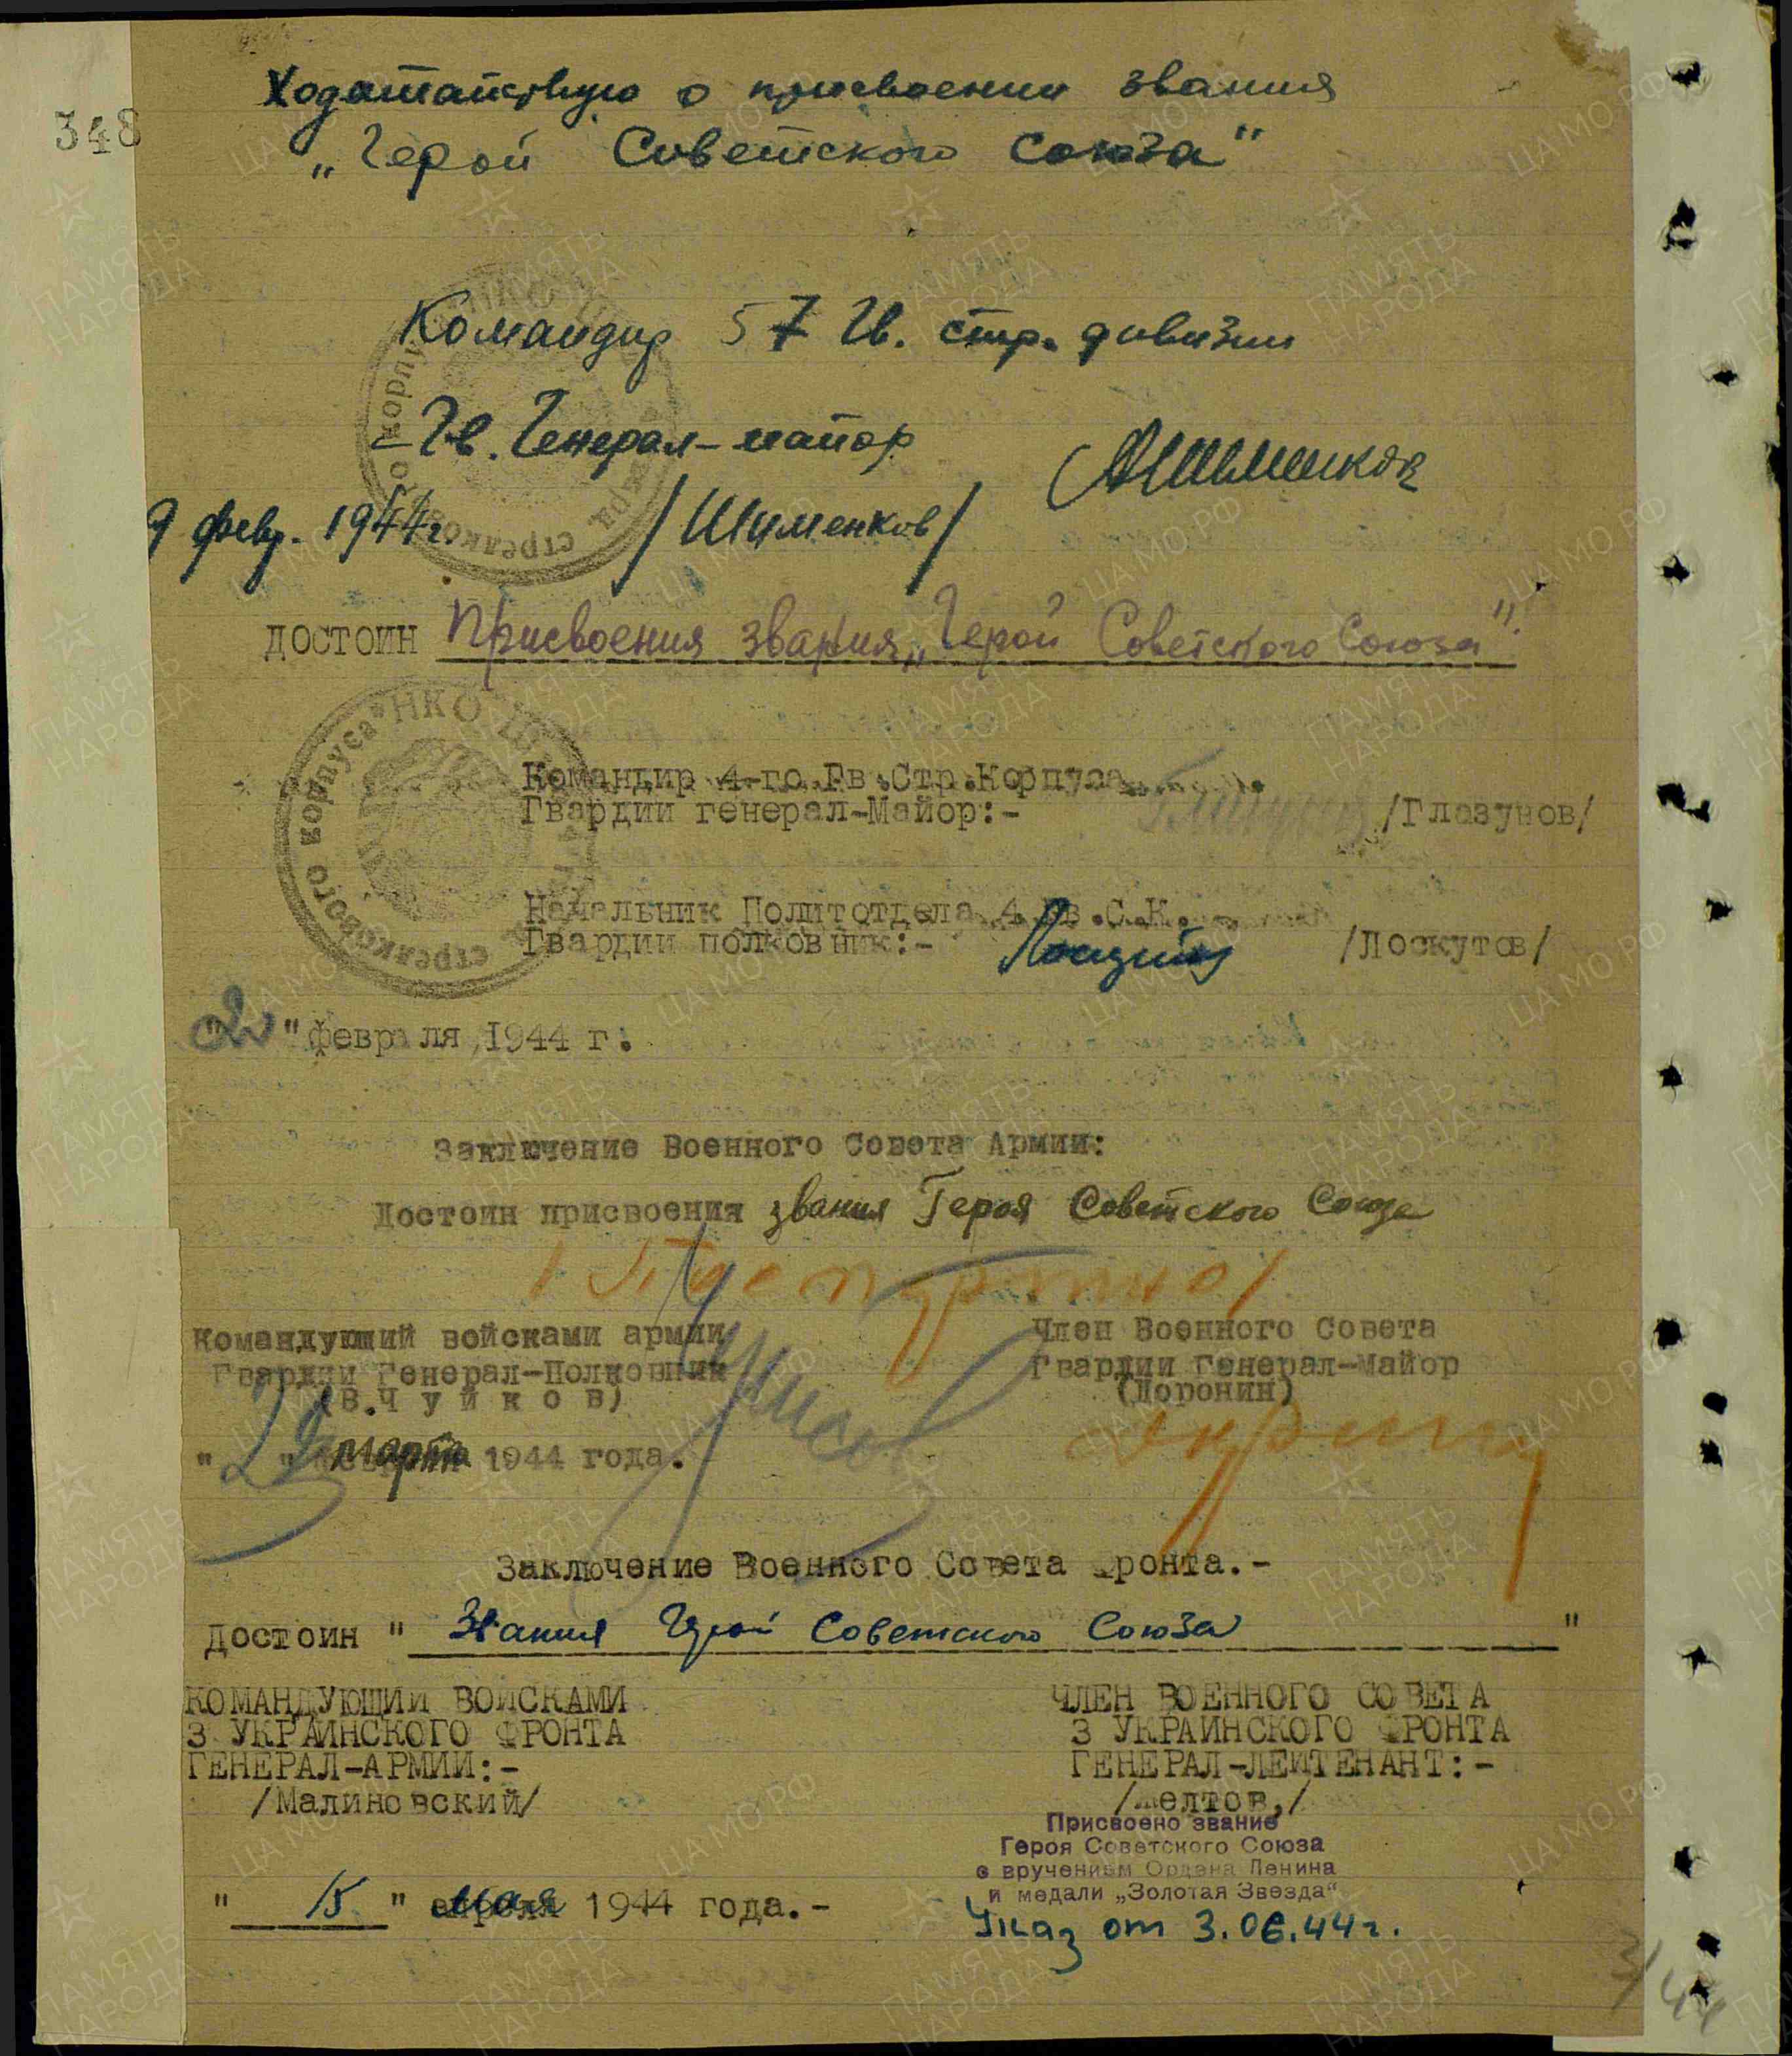 348
Ходатайствую о присвоении звания
„Герой Советского Союза“
Командир 57 Гв. стр. дивизии
Гв. Генерал-майор
9 февр. 1944г. /Шименков/
ДОСТОИН Присвоения звания „Герой Советского Союза“.
корпуса НКО
стрелкового
Командир 4-го Гв.Стр.Корпуса
Гвардии генерал-Майор:- /Глазунов/
Начальник Политотдела 4 Гв.С.К.
Гвардии полковник:- /Лоскутов/
" февраля 1944 г.
Заключение Военного Совета Армии:
Достоин присвоения звания Героя Советского Союза
Командующий войсками армии
Гвардии Генерал-Полковник
(В.Чуйков)
Член Военного Совета
Гвардии Генерал-Майор
(Доронин)
" " марта 1944 года.
Заключение Военного Совета Фронта.-
Достоин " Звания Герой Советского Союза "
КОМАНДУЮЩИЙ ВОЙСКАМИ
3 УКРАИНСКОГО ФРОНТА
ГЕНЕРАЛ-АРМИИ:-
/Малиновский/
ЧЛЕН ВОЕННОГО СОВЕТА
3 УКРАИНСКОГО ФРОНТА
ГЕНЕРАЛ-ЛЕЙТЕНАНТ:-
/Желтов,/
Присвоено звание
Героя Советского Союза
с вручением Ордена Ленина
и медали „Золотая Звезда“
Указ от 3.06.44г.
" 15 " мая 1944 года.-
ПАМЯТЬ НАРОДА
ЦА МО РФ